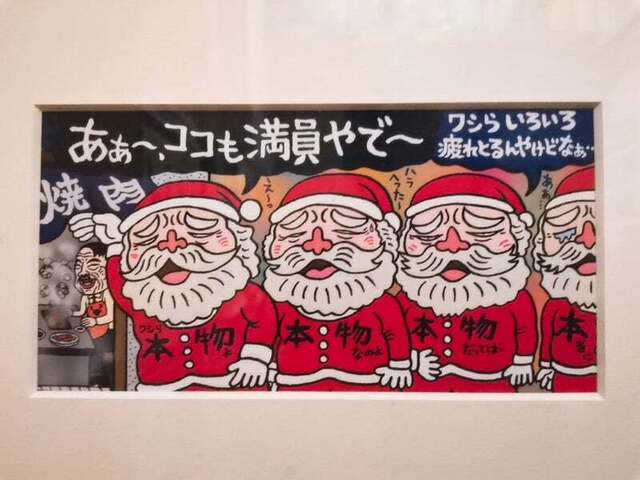 あぁ〜、ココも満員やで〜
ワシら いろいろ
疲れとるんやけどなぁ…
焼肉
え〜っ
ハラ
へった〜
あぁ…
ワシら
本物よ
本物
なのよ
本物
だってば
本